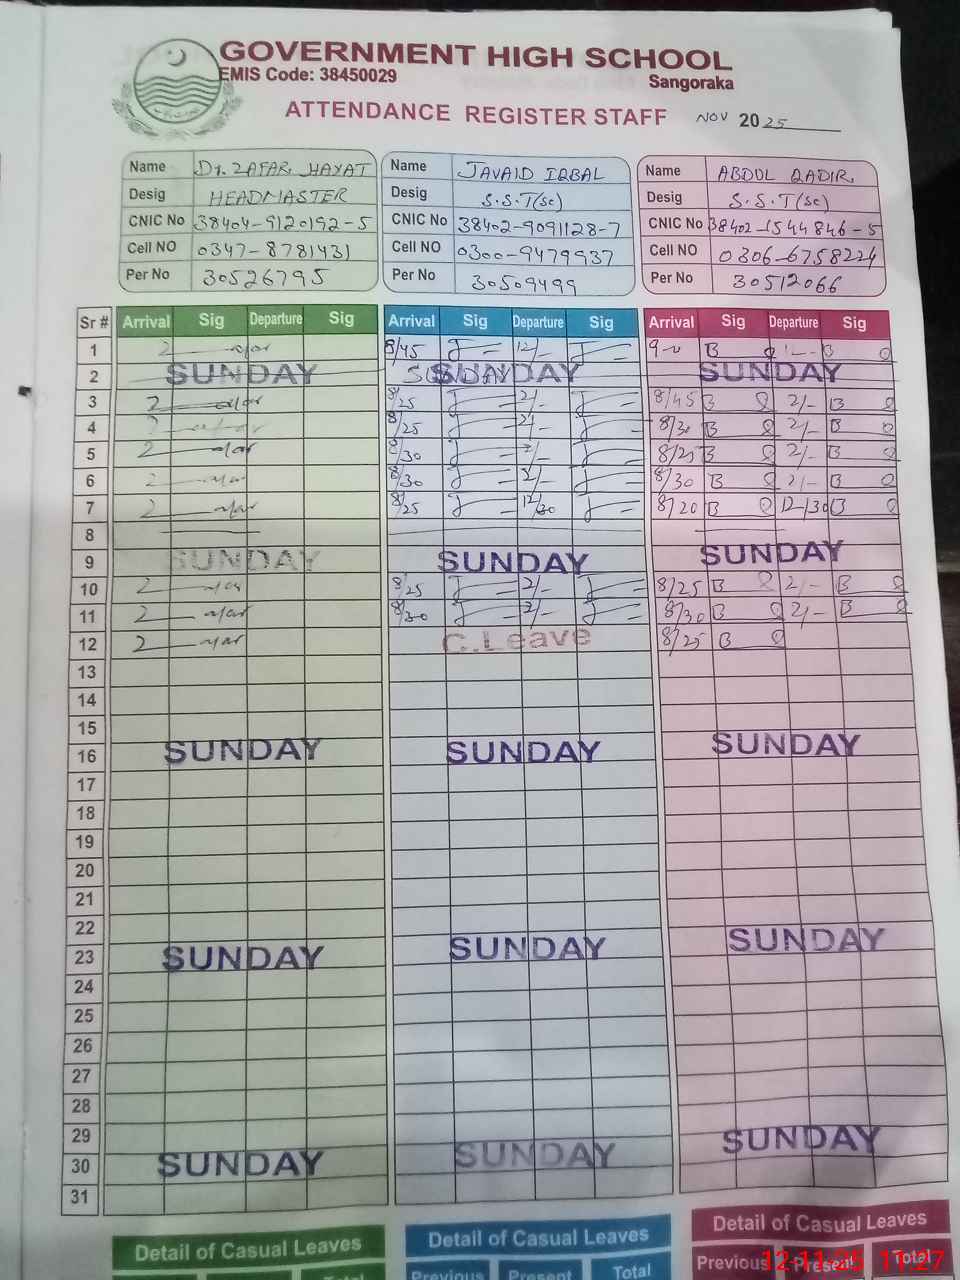 GOVERNMENT HIGH SCHOOL
EMIS Code: 38450029
Sangoraka
ATTENDANCE REGISTER STAFF NOV 2025
Name Dr. ZAFAR HAYAT
Desig HEADMASTER
CNIC No 38404-9120192-5
Cell NO 0347-8781431
Per No 30526795
Name JAVAID IQBAL
Desig S.S.T(Sc)
CNIC No 38402-9091128-7
Cell NO 0300-9479937
Per No 30509499
Name ABDUL QADIR
Desig S.S.T(Sc)
CNIC No 38402-1544846-5
Cell NO 0306-6758224
Per No 30512066
Sr # Arrival Sig Departure Sig Arrival Sig Departure Sig Arrival Sig Departure Sig
1 8/45 12/-
2 SUNDAY SUNDAY SUNDAY
3 8/25 2/- 8/45 2/-
4 8/25 2/- 8/30 2/-
5 8/30 2/- 8/25 2/-
6 8/30 2/- 8/30 2/-
7 8/25 12/30 8/20 12/30
8
9 SUNDAY SUNDAY SUNDAY
10 8/25 2/- 8/25 2/-
11 8/30 2/- 8/30 2/-
12 C.Leave 8/25
13
14
15
16 SUNDAY SUNDAY SUNDAY
17
18
19
20
21
22
23 SUNDAY SUNDAY SUNDAY
24
25
26
27
28
29
30 SUNDAY SUNDAY SUNDAY
31
Detail of Casual Leaves Detail of Casual Leaves Detail of Casual Leaves
Total Previous Present Total Previous Present Total
12-11-25 11:27